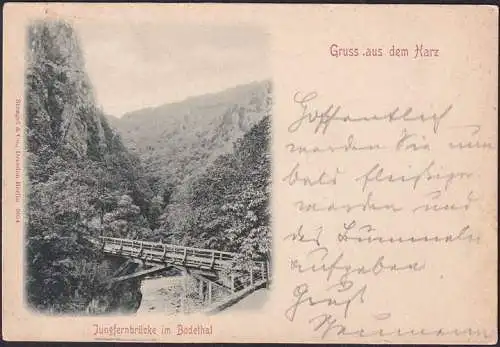 Gruss aus dem Harz
Hoffentlich
werden Sie nun
bald fleißiger
werden und
das Bummeln
aufgeben
Gruß
Neumann
Jungfernbrücke im Bodethal
Stengel & Co., Dresden-Berlin